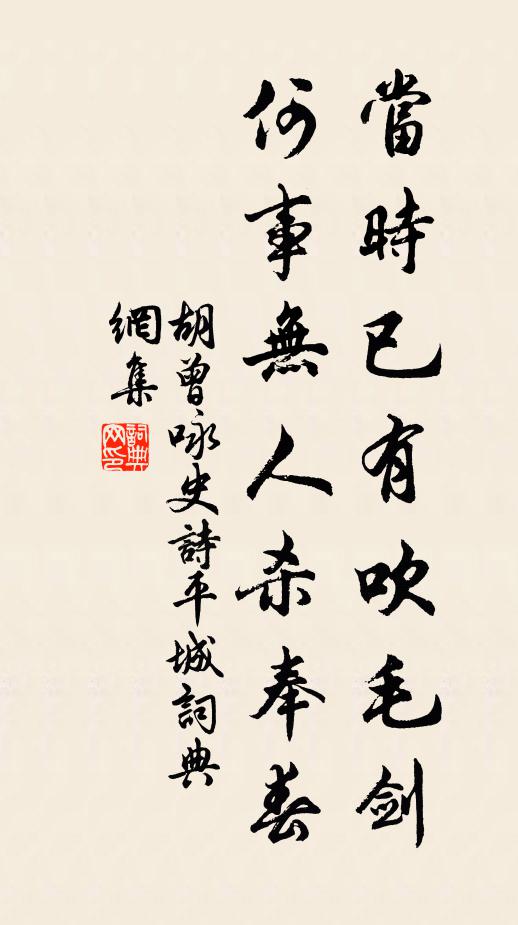 當時已有吹毛剑
何事無人杀奉春
胡曾咏史詩平城詞典
網集
詞典
网印